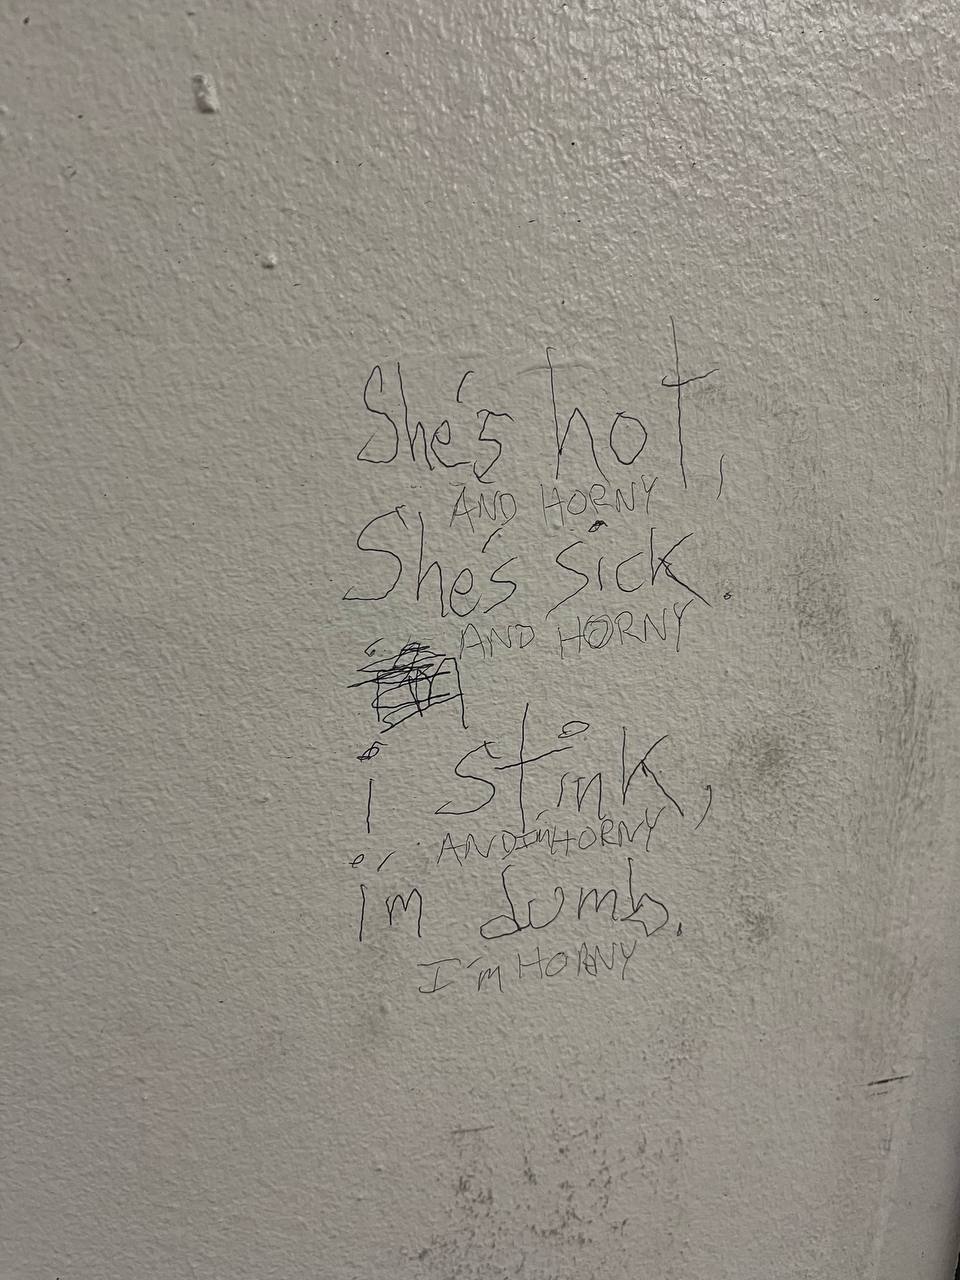 She's hot,
AND HORNY
She's sick.
AND HORNY
i stink,
AND I'm HORNY
i'm dumb.
I'm HORNY